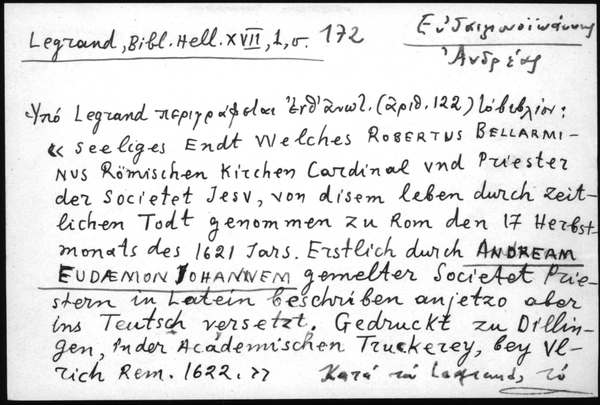 Legrand, Bibl. Hell. XVII, 1, σ. 172
Εὐδαιμονοϊωάννης
Ἀνδρέας
Ὑπό Legrand περιγράφεται (ἀριθ. 122) τό βιβλίον:
« Seeliges Endt Welches ROBERTUS BELLARMI-
NUS Römischen Kirchen Cardinal vnd Priester
der Societet Jesv, von disem leben durch zeit-
lichen Todt genommen zu Rom den 17 Herbst-
monats des 1621 Jars. Erstlich durch ANDREAM
EUDÆMON JOHANNEM gemelter Societet Prie-
stern in Latein beschriben anjetzo aber
ins Teutsch versetzt. Gedruckt zu Dillin-
gen, in der Academischen Truckerey, bey Vl-
rich Rem. 1622. »
Κατά τόν Legrand, τό